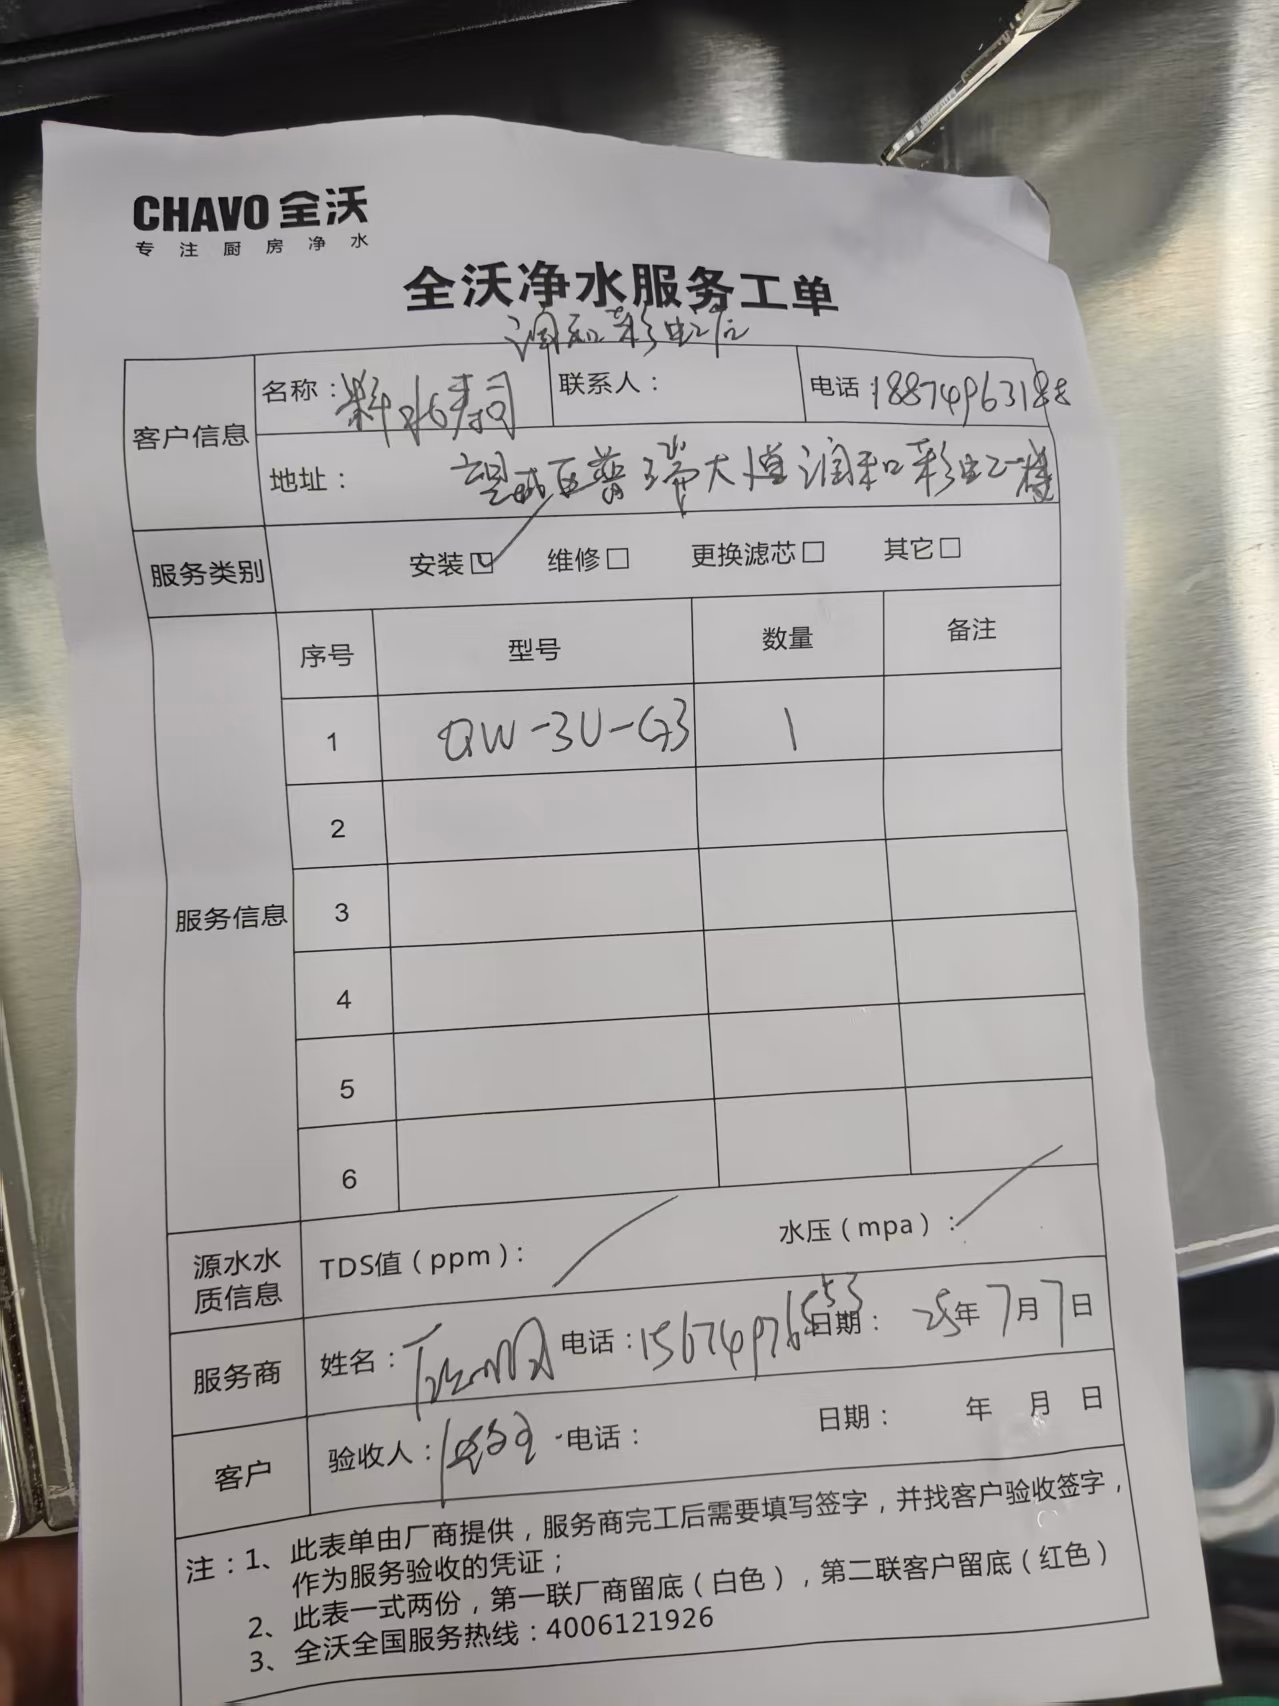 CHAVO 全沃
专注厨房净水
全沃净水服务工单
润和彩虹店
客户信息
名称:
寿司
联系人:
电话:1887496318
地址:
望城区普瑞大道润和彩虹一楼
服务类别
安装☑ 维修□ 更换滤芯□ 其它□
服务信息
序号 型号 数量 备注
1 QW-3U-G3 1
2
3
4
5
6
源水水质信息
TDS值(ppm): 水压(mpa):
服务商
姓名: 电话:15674976553 日期: 25年7月7日
客户
验收人: 电话: 日期: 年 月 日
注:1、此表单由厂商提供,服务商完工后需要填写签字,并找客户验收签字,
作为服务验收的凭证;
2、此表一式两份,第一联厂商留底(白色),第二联客户留底(红色)
3、全沃全国服务热线:4006121926